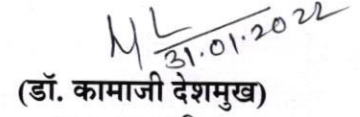 31.01.2022
(डॉ. कामाजी देशमुख)